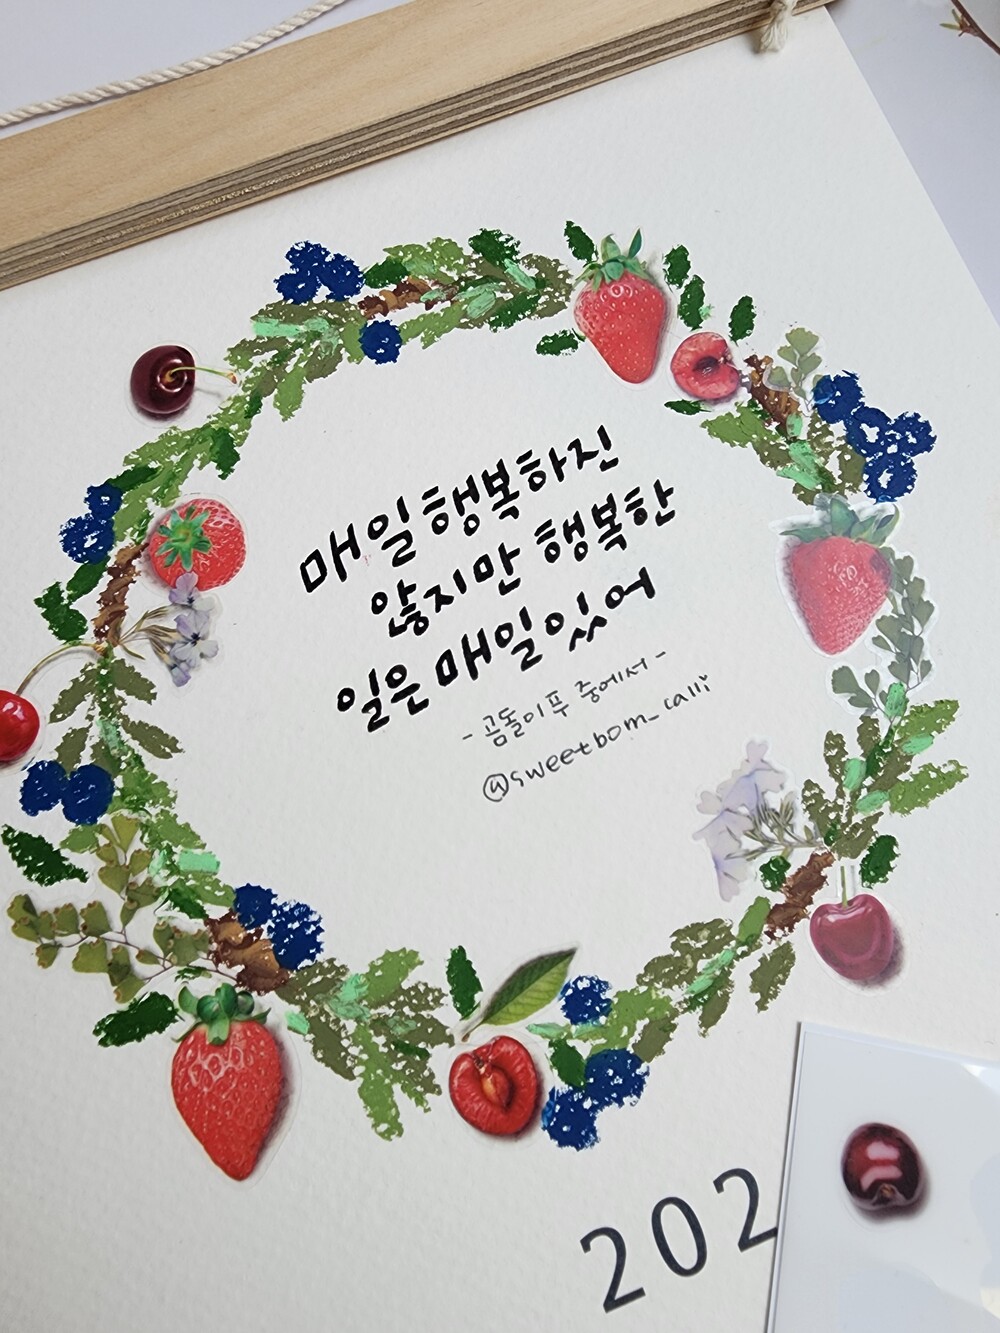 매일 행복하진
않지만 행복한
일은 매일 있어
- 곰돌이 푸 중에서 -
@sweetbom_calli
202